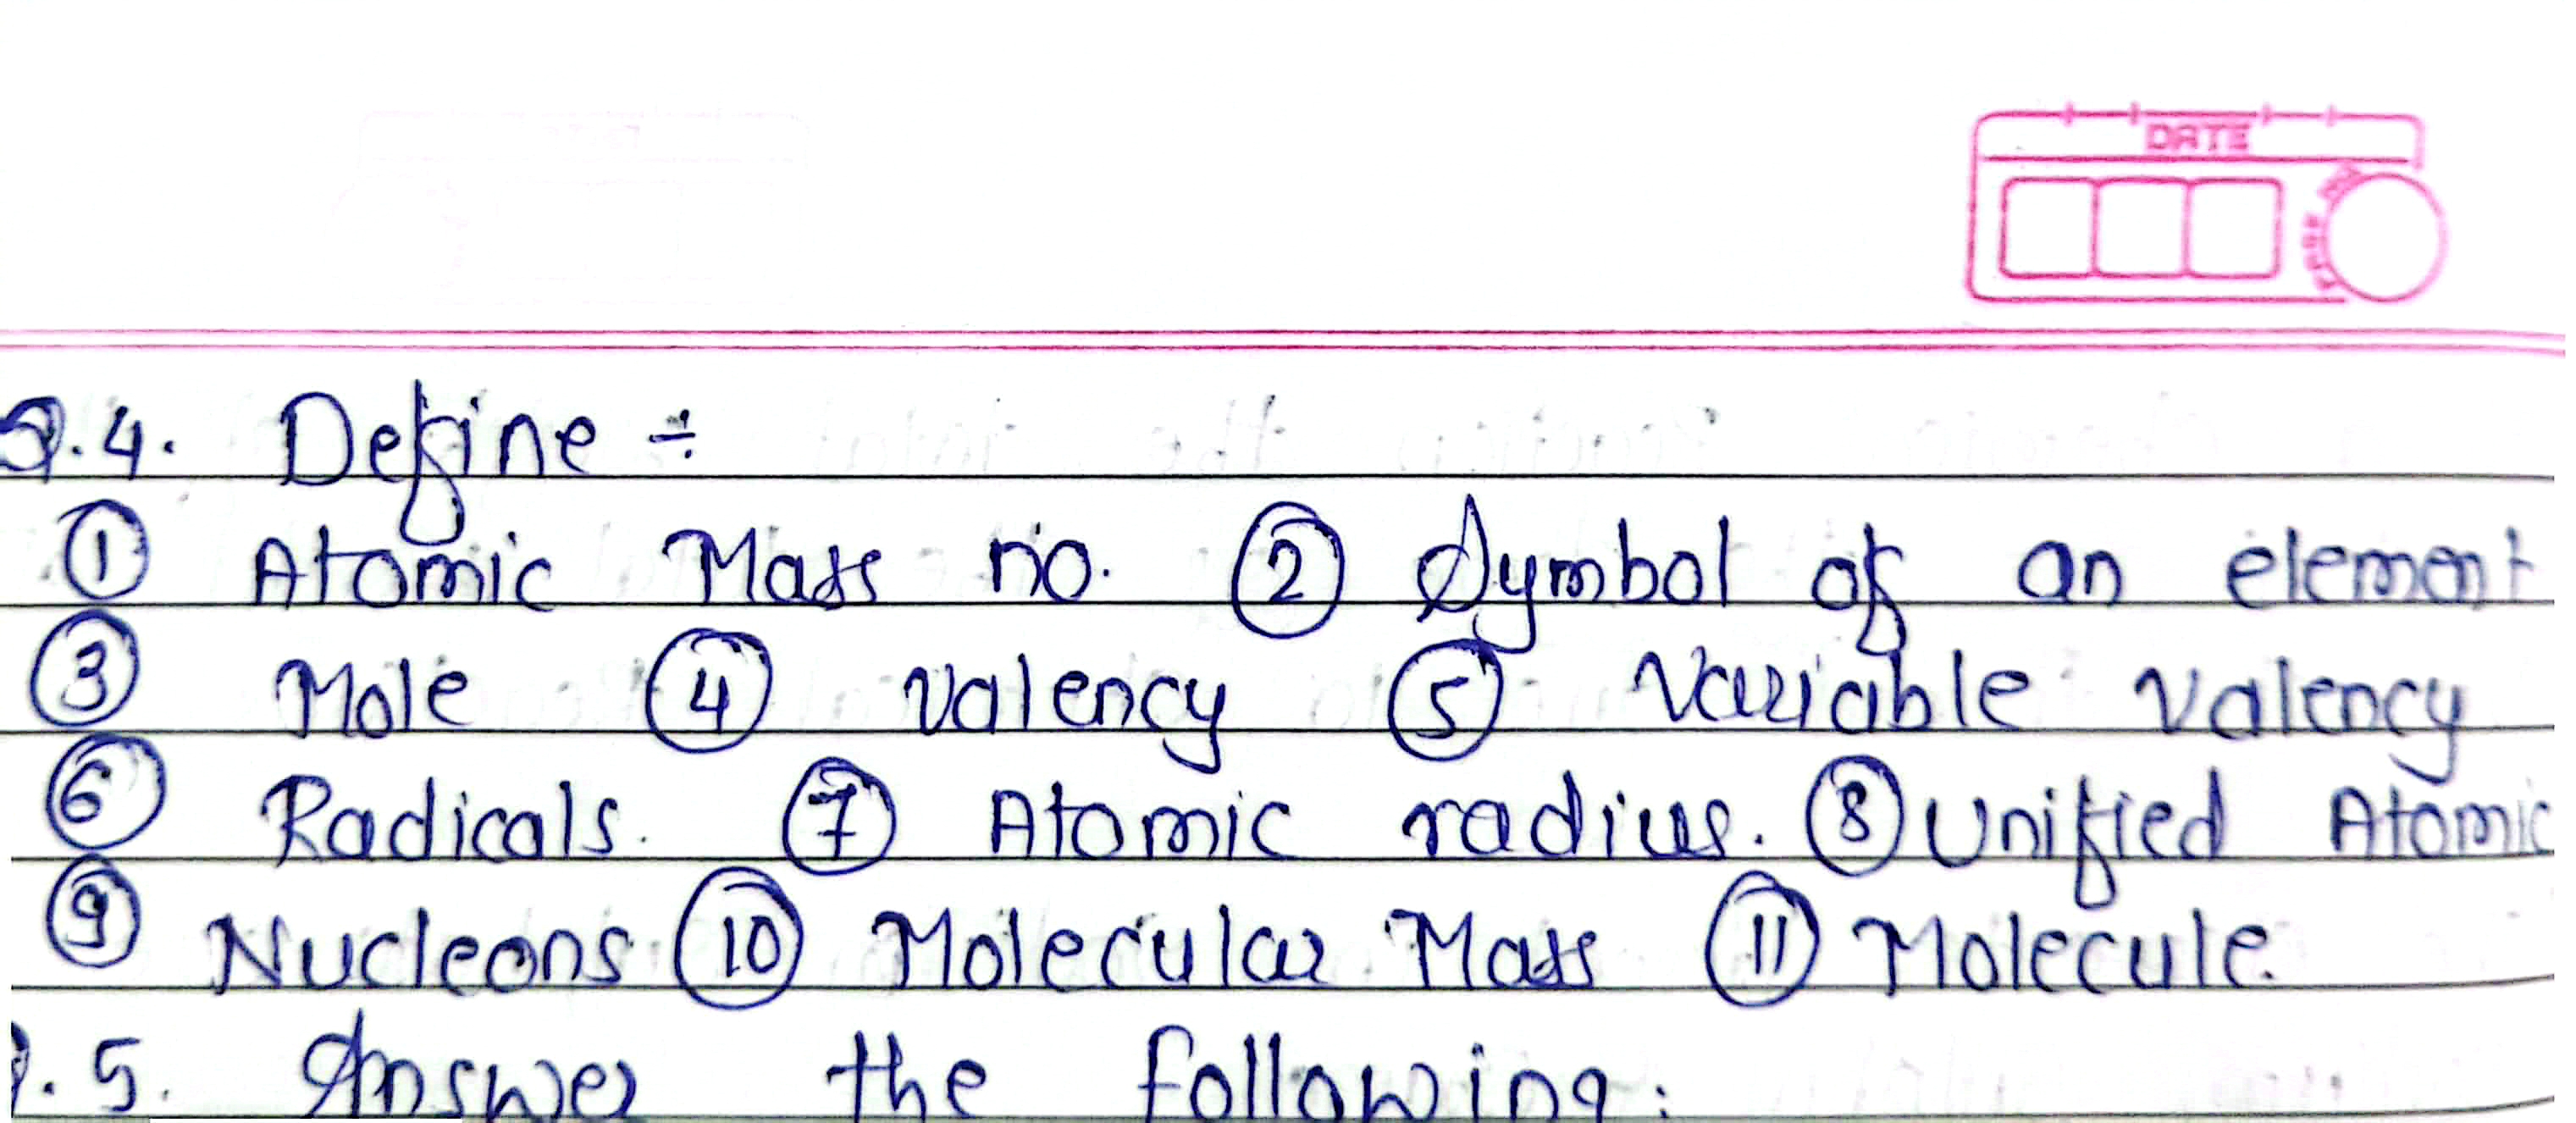 DATE
PAGE NO.
Q.4. Define ÷
① Atomic Mass no. ② Symbol of an element
③ Mole ④ valency ⑤ Variable valency
⑥ Radicals. ⑦ Atomic radius. ⑧ Unified Atomic
⑨ Nucleons ⑩ Molecular Mass ⑪ Molecule.
Q.5. Answer the following: